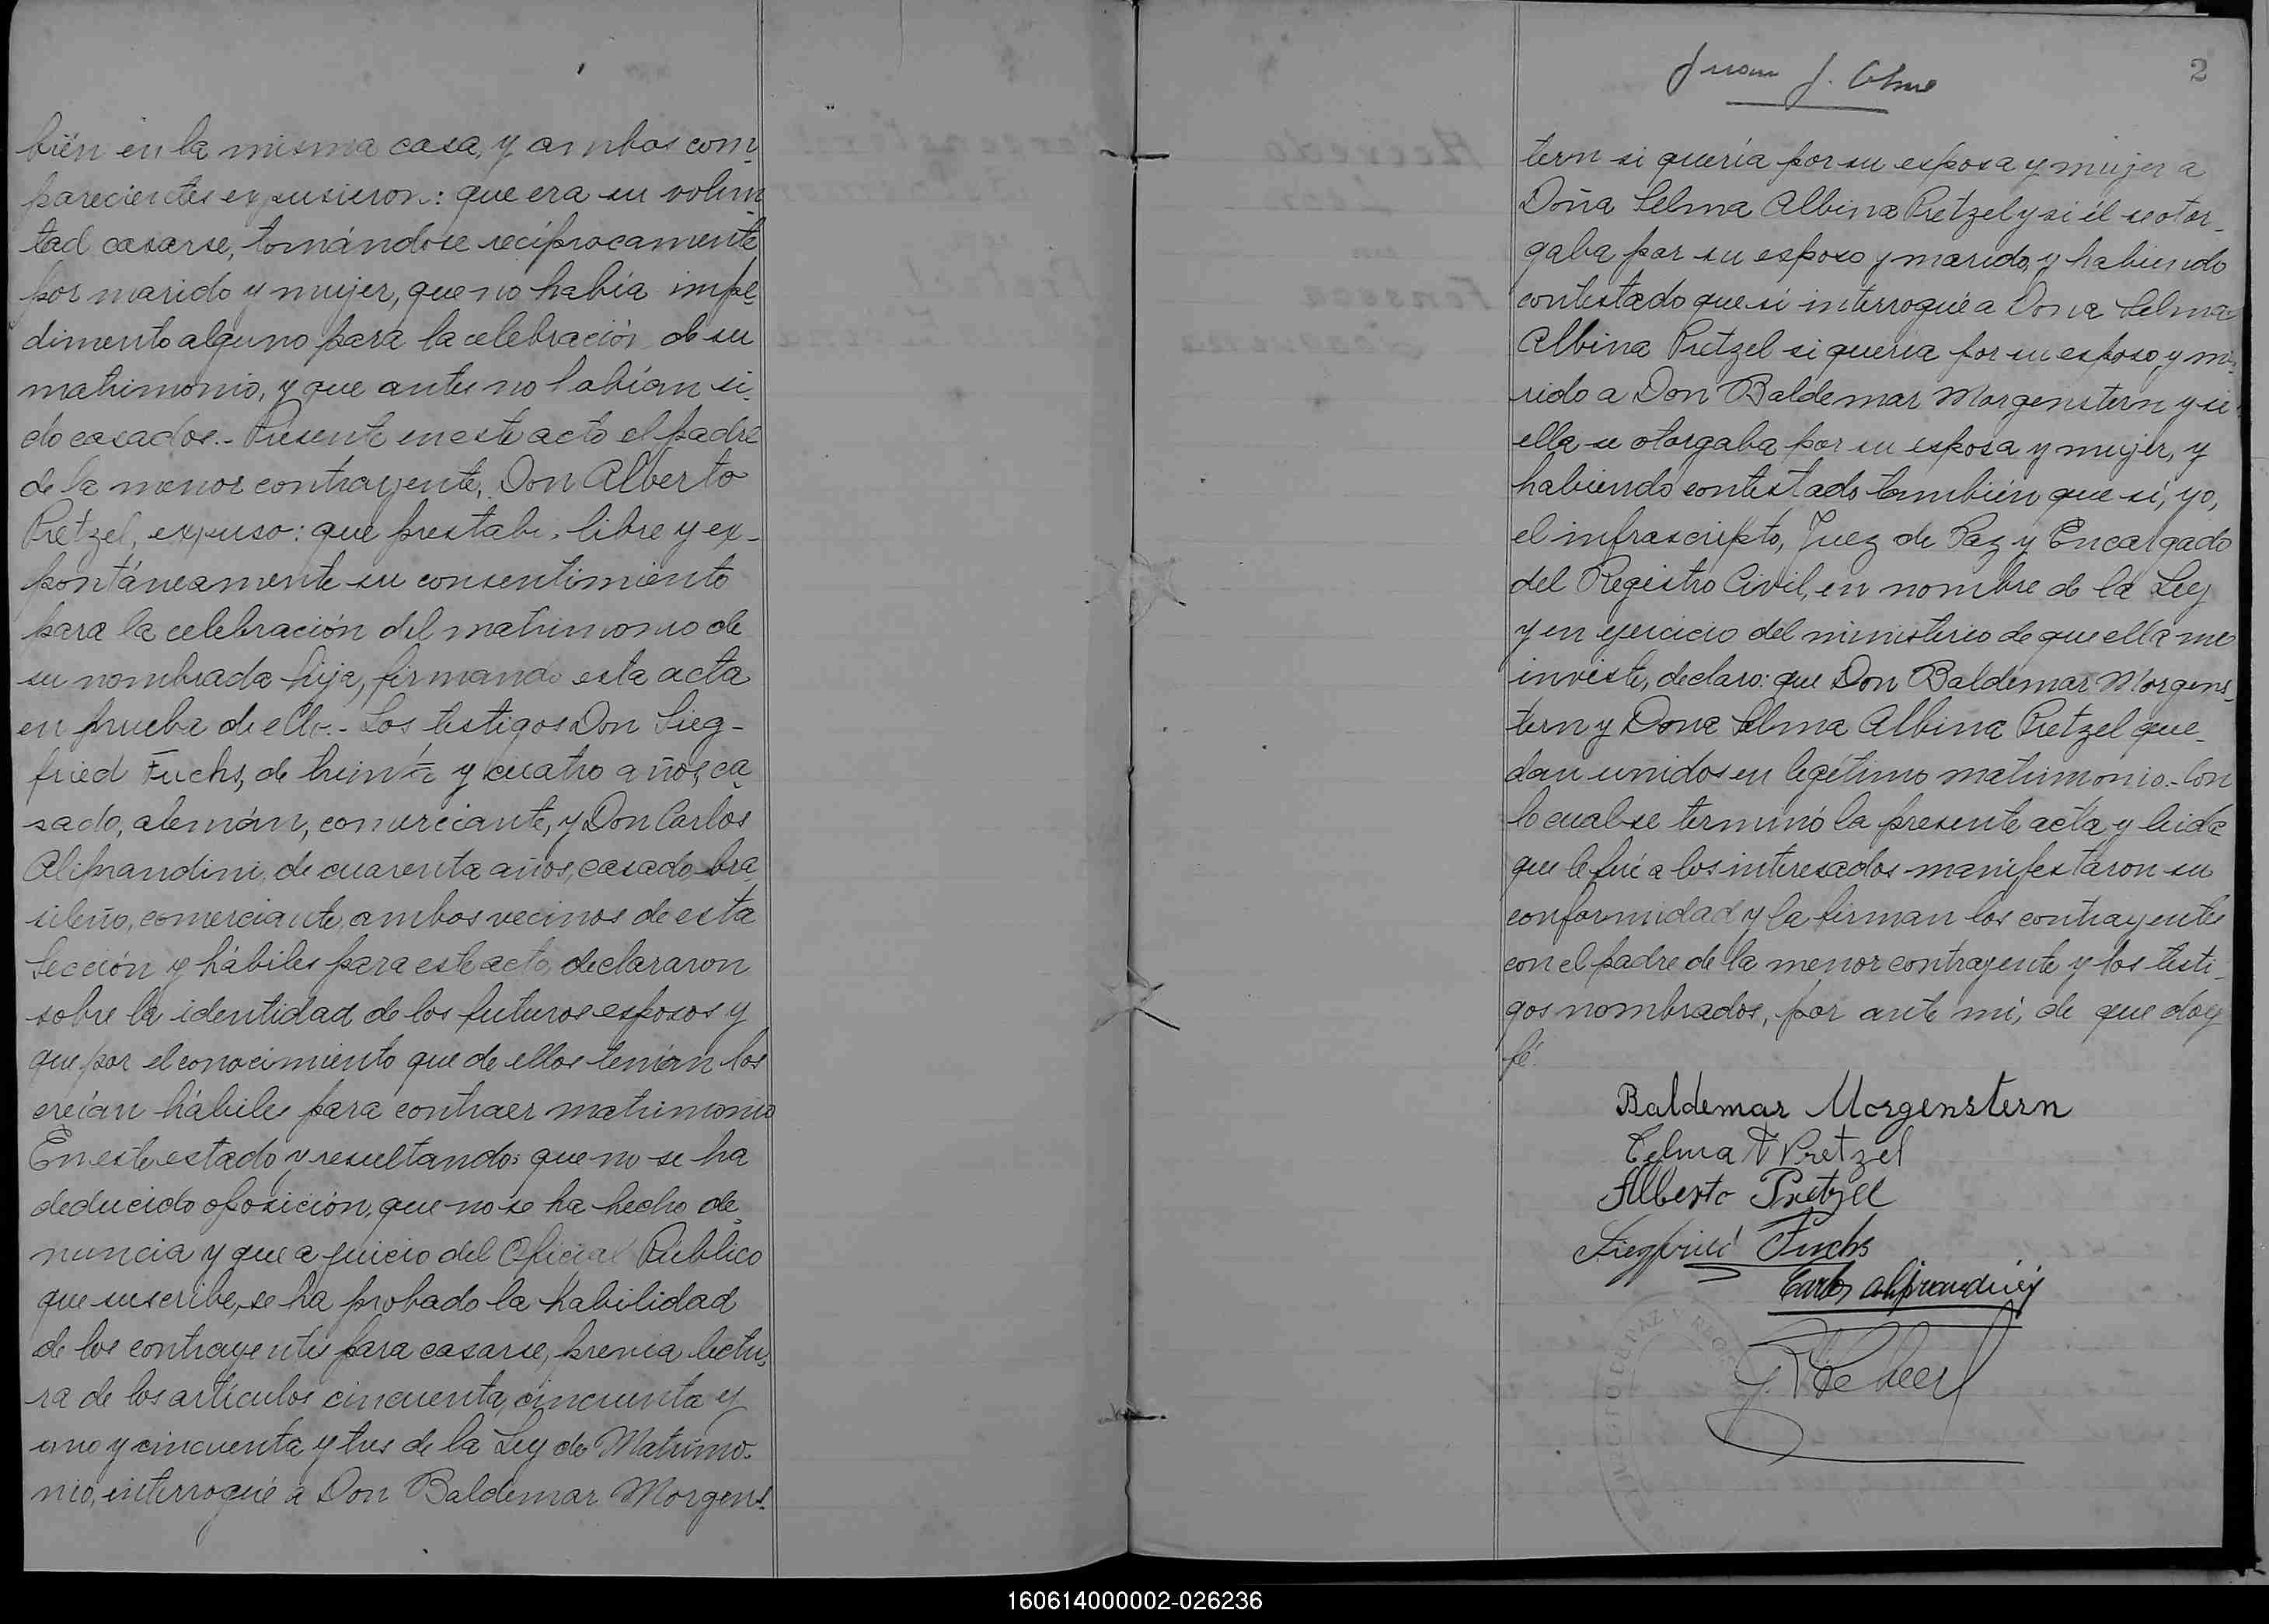 bién en la misma casa, y ambos com-
parecientes expusieron: que era su volun-
tad casarse, tomándose recíprocamente
por marido y mujer, que no había impe-
dimento alguno para la celebración de su
matrimonio, y que antes no habían si-
do casados.- Presente en este acto el padre
de la menor contrayente, Don Alberto
Pretzel, expuso: que prestaba libre y ex-
pontáneamente su consentimiento
para la celebración del matrimonio de
su nombrada hija, firmando esta acta
en prueba de ello.- Los testigos Don Sieg-
fried Fuchs, de treinta y cuatro años, ca-
sado, alemán, comerciante, y Don Carlos
Aliprandini, de cuarenta años, casado, bra-
sileño, comerciante, ambos vecinos de esta
Sección y hábiles para este acto, declararon
sobre la identidad de los futuros esposos y
que por el conocimiento que de ellos tenían los
creían hábiles para contraer matrimonio
En este estado y resultando: que no se ha
deducido oposición, que no se ha hecho de-
nuncia y que a juicio del Oficial Público
que suscribe, se ha probado la habilidad
de los contrayentes para casarse, previa lectu-
ra de los artículos cincuenta, cincuenta y
uno y cincuenta y tres de la Ley de Matrimo-
nio, interrogué a Don Baldemar Morgens-
2
Juan J.
tern si quería por su esposa y mujer a
Doña Selma Albina Pretzel y si él se otor-
gaba por su esposo y marido, y habiendo
contestado que sí interrogué a Dona Selma
Albina Pretzel si quería por su esposo y ma-
rido a Don Baldemar Morgenstern y si
ella se otorgaba por su esposa y mujer, y
habiendo contestado también que sí, yo,
el infrascripto, Juez de Paz y Encargado
del Registro Civil, en nombre de la Ley
y en ejercicio del ministerio de que ella me
inviste, declaro: que Don Baldemar Morgens-
tern y Dona Selma Albina Pretzel que-
dan unidos en legítimo matrimonio.- Con
lo cual se terminó la presente acta y leida
que le fué a los interesados manifestaron su
conformidad y la firman los contrayentes
con el padre de la menor contrayente y los testi-
gos nombrados, por ante mí, de que doy
fé.
Baldemar Morgenstern
Selma A Pretzel
Alberto Pretzel
Siegfried Fuchs
Carlos Aliprandini
160614000002-026236